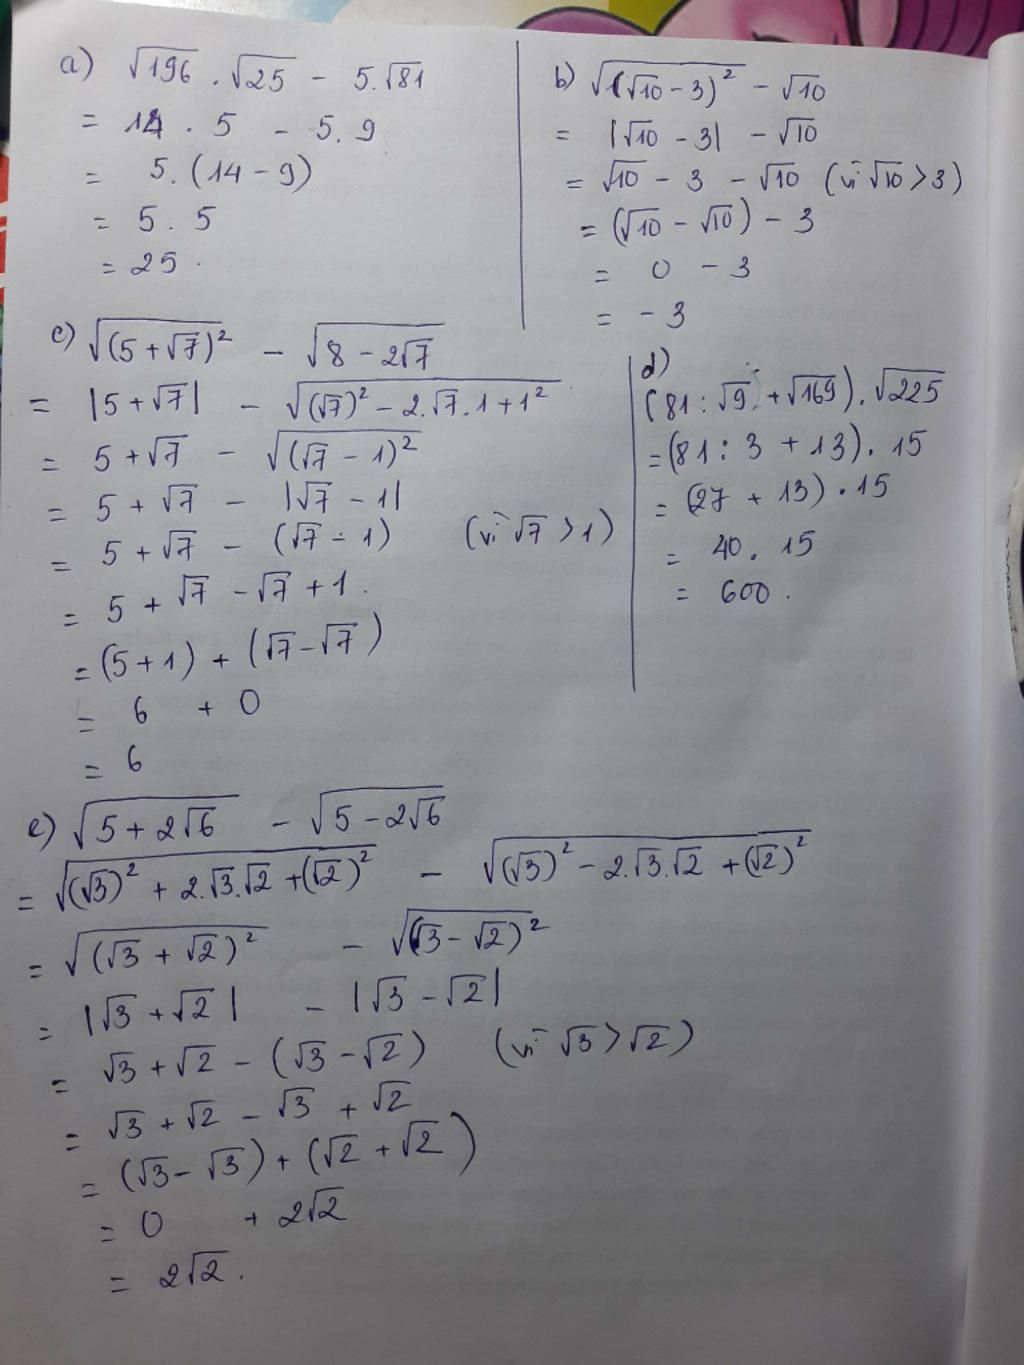 a) √196 . √25 - 5.√81
= 14 . 5 - 5. 9
= 5. (14 - 9)
= 5 . 5
= 25 .
b) √(√10 - 3)² - √10
= |√10 - 3| - √10
= √10 - 3 - √10 (vì √10 > 3)
= (√10 - √10) - 3
= 0 - 3
= - 3
c) √(5 + √7)² - √8 - 2√7
= |5 + √7| - √(√7)² - 2.√7.1 + 1²
= 5 + √7 - √(√7 - 1)²
= 5 + √7 - |√7 - 1|
= 5 + √7 - (√7 - 1) (vì √7 > 1)
= 5 + √7 - √7 + 1.
= (5 + 1) + (√7 - √7)
= 6 + 0
= 6
d)
(81 : √9 + √169) . √225
= (81 : 3 + 13) . 15
= (27 + 13) . 15
= 40 . 15
= 600 .
e) √5 + 2√6 - √5 - 2√6
= √(√3)² + 2.√3.√2 + (√2)² - √(√3)² - 2.√3.√2 + (√2)²
= √(√3 + √2)² - √(√3 - √2)²
= |√3 + √2| - |√3 - √2|
= √3 + √2 - (√3 - √2) (vì √3 > √2)
= √3 + √2 - √3 + √2
= (√3 - √3) + (√2 + √2)
= 0 + 2√2
= 2√2 .